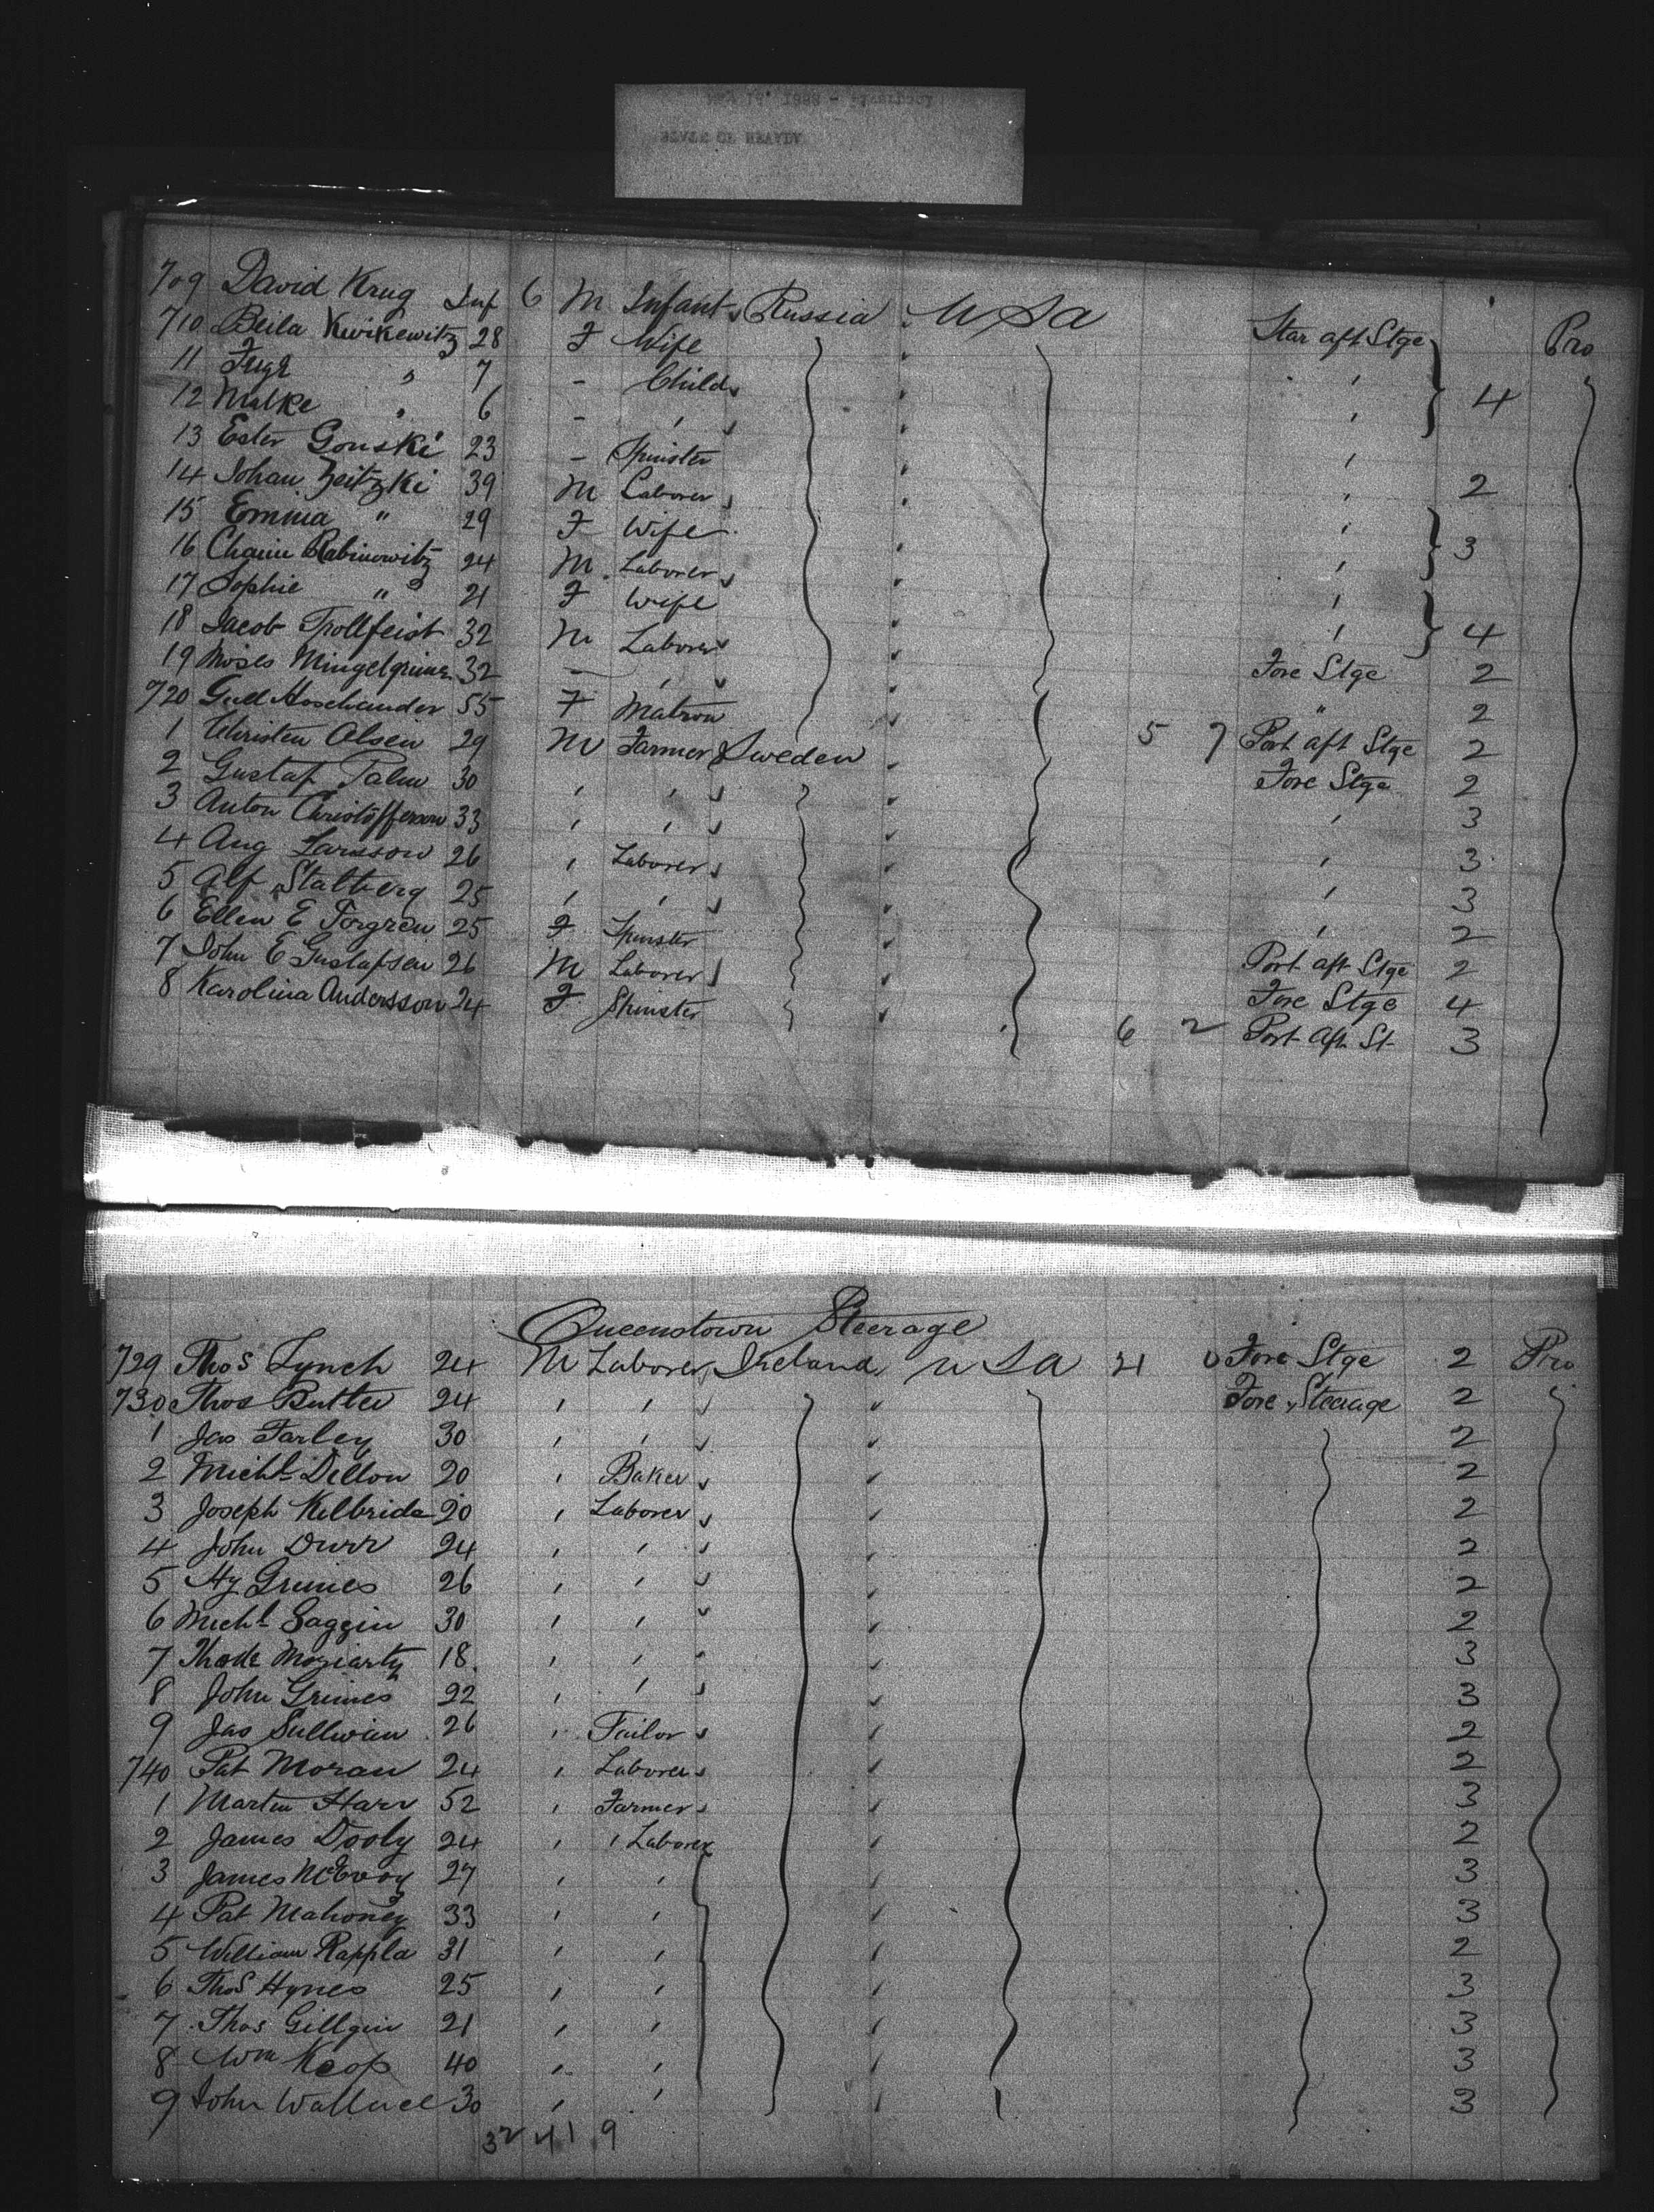 709 David Krug Inf 6 M Infant Russia U S A Star aft Stge Pro
710 Beila Kwikewitz 28 F Wife ,
11 , 7 - Child , 4
12 Malke , 6 - , ,
13 Ester Gonski 23 - Spinster , 2
14 Johan Zeitzki 39 M Laborer ,
15 Emma " 29 F Wife , 3
16 Chaim Rabinowitz 24 M Laborer ,
17 Sophie " 21 F Wife , 4
18 Jacob Trollfeist 32 M Laborer Fore Stge 2
19 Moses 32 - , " 2
720 55 F Matron 5 7 Port aft Stge 2
1 Christen Olsen 29 M Farmer Sweden Fore Stge 2
2 Gustaf Palm 30 , , , 3
3 Anton Christofferson 33 , , , 3
4 Aug Larsson 26 , Laborer , 3
5 Alf Stalberg 25 , , , 2
6 Ellen E Torgren 25 F Spinster Port aft Stge 2
7 John E Gustafsen 26 M Laborer Fore Stge 4
8 Karolina Andersson 24 F Spinster 6 2 Port Aft St 3
Queenstown Steerage
729 Thos Lynch 24 M Laborer Ireland U S A 21 0 Fore Stge 2 Pro
730 Thos Butler 24 , , Fore Steerage 2
1 Jas Farley 30 , , 2
2 Michl Dillon 20 , Baker 2
3 Joseph Kilbride 20 , Laborer 2
4 John Durr 24 , , 2
5 Hy Grimes 26 , , 2
6 Michl Gaggin 30 , , 2
7 Moriarty 18 , , 3
8 John Grimes 22 , , 3
9 Jas Sullivan 26 , Tailor 2
740 Pat Moran 24 , Laborer 2
1 Martin Harr 52 , Farmer 3
2 James Dooly 24 , , Laborer 2
3 James McEvoy 27 , , 3
4 Pat Mahoney 33 , , 3
5 William Rappla 31 , , 2
6 Thos Hynes 25 , , 3
7 Thos Gillgin 21 , , 3
8 Wm Keop 40 , , 3
9 John Wallace 30 , , 3
32 41 9